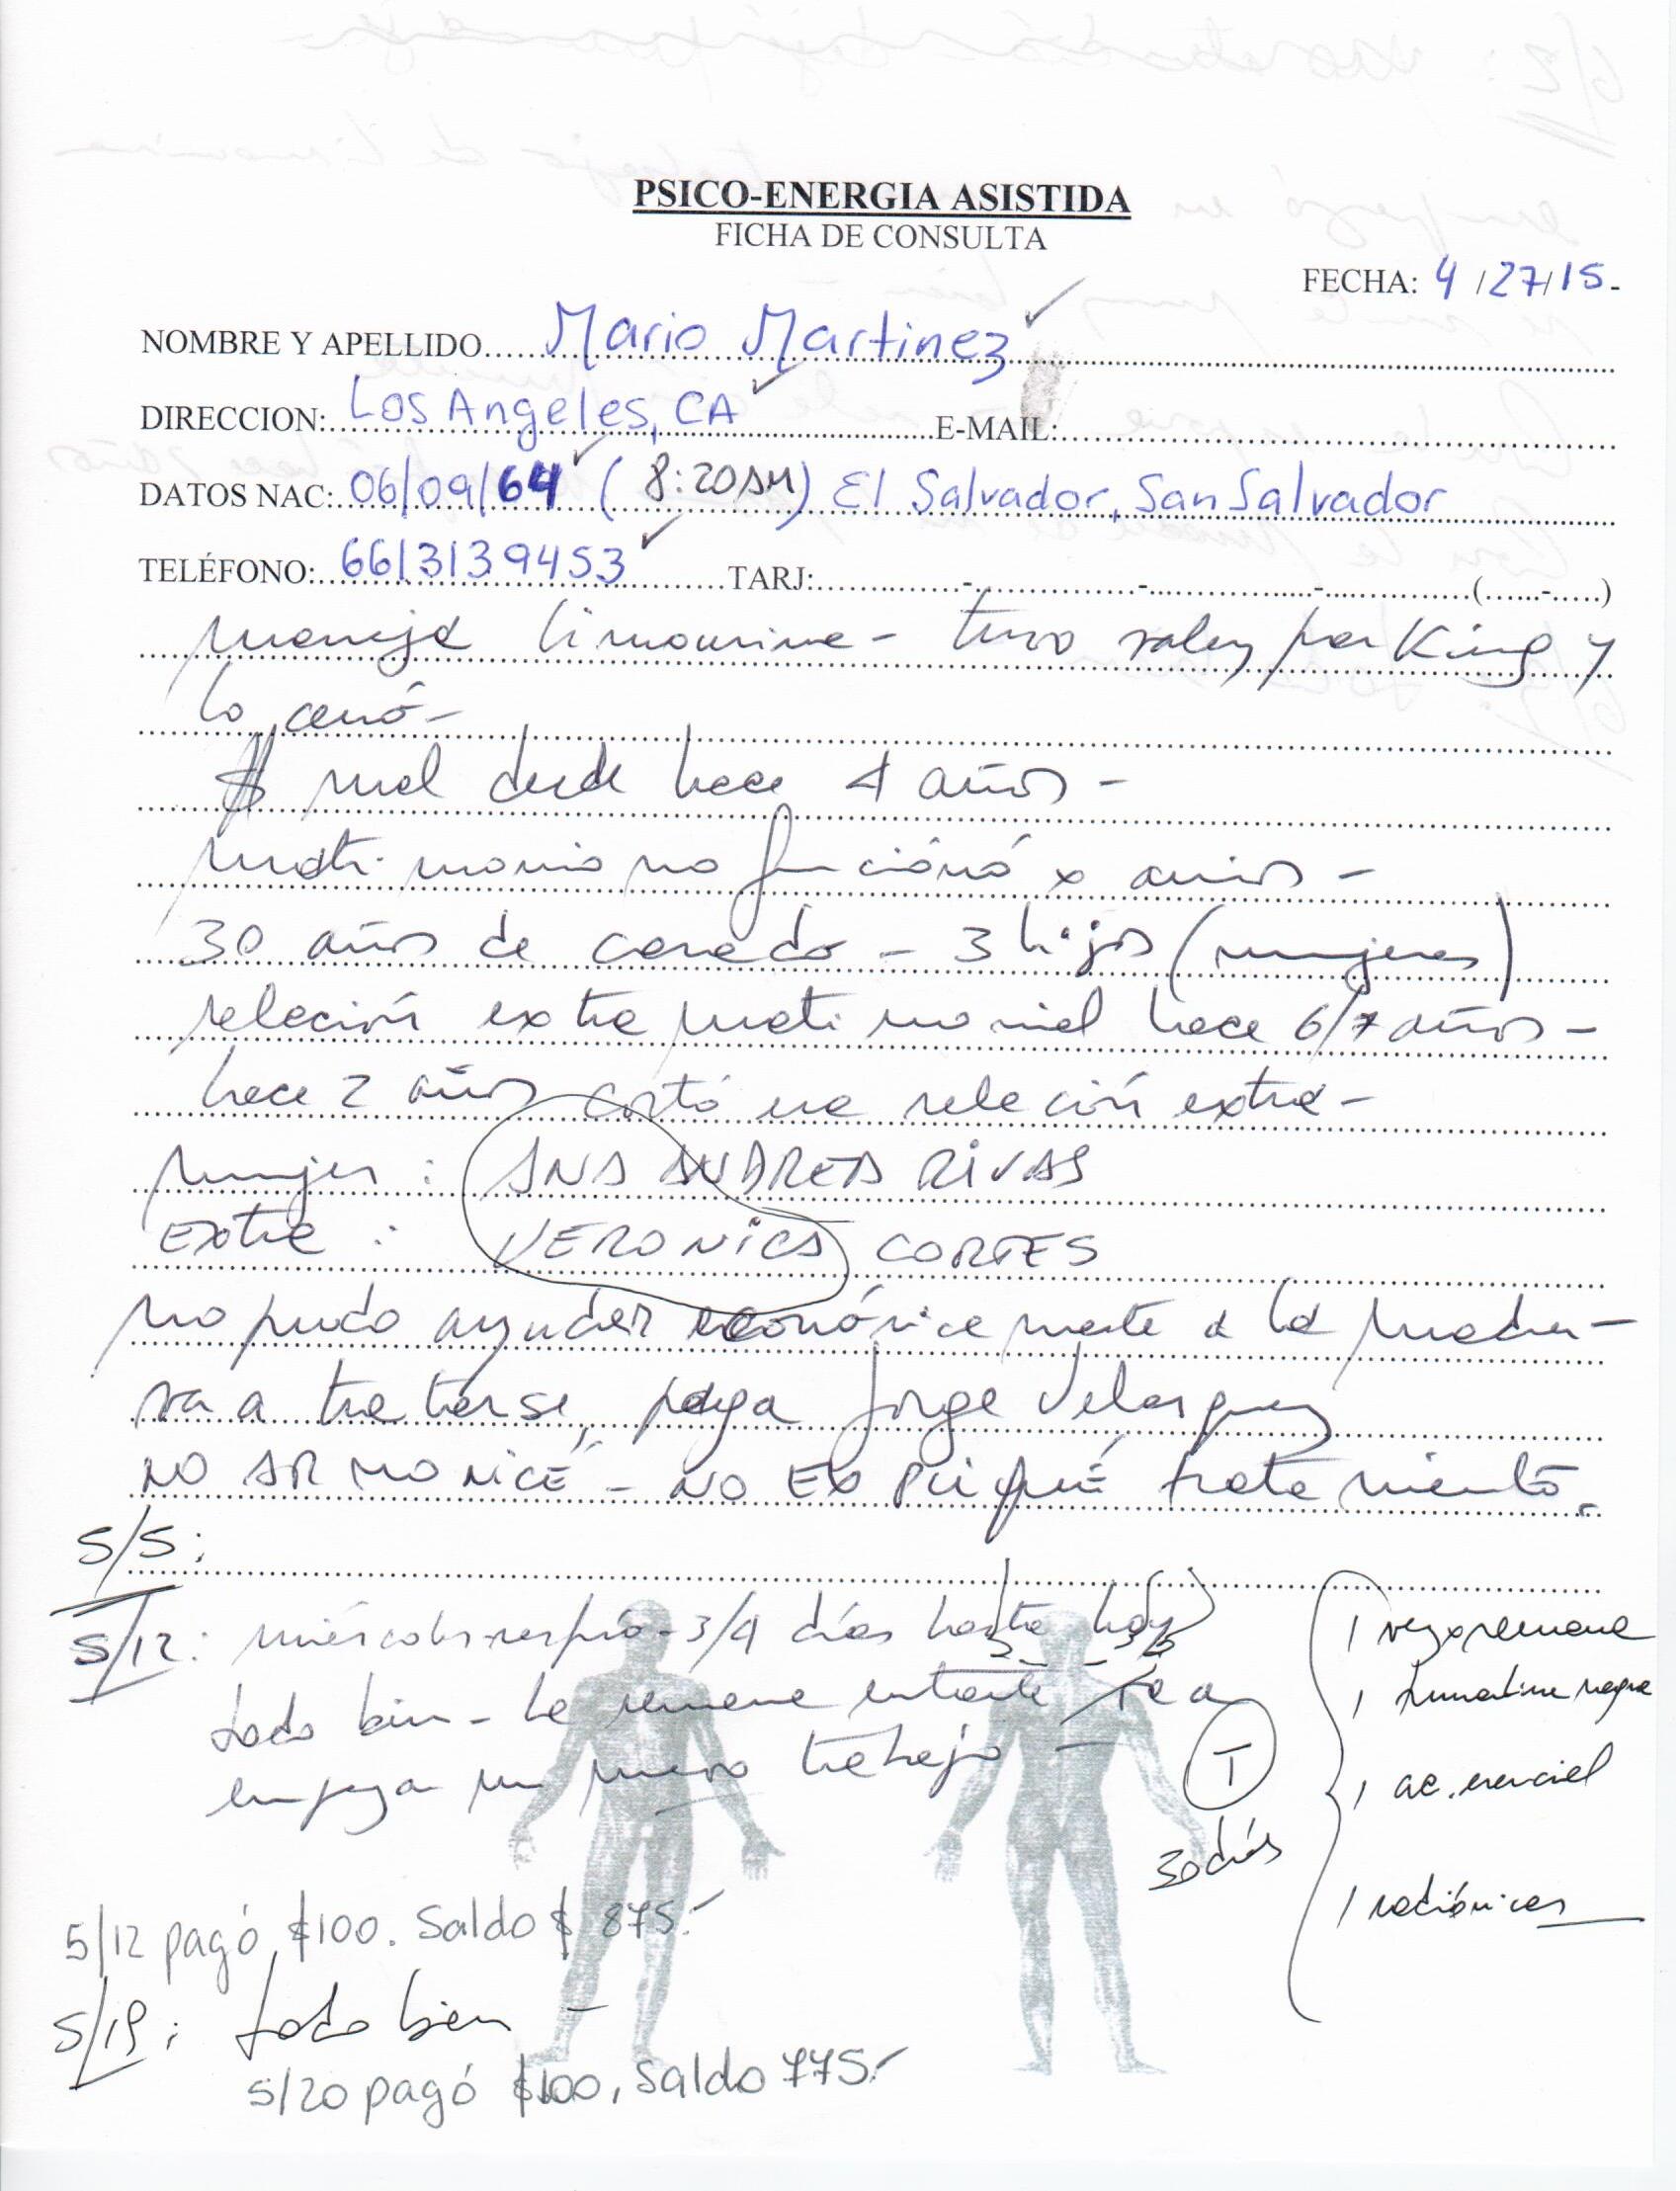 PSICO-ENERGIA ASISTIDA
FICHA DE CONSULTA
FECHA: 4/27/15.-
NOMBRE Y APELLIDO Mario Martinez
DIRECCION: Los Angeles, CA E-MAIL:
DATOS NAC: 06/09/64 (8:20AM) El Salvador, San Salvador
TELÉFONO: 6613139453 TARJ: - - - ( - )
maneja limousine - tuvo valey parking y
lo cerró -
mal desde hace 4 años -
matrimonio no funciónó x
30 años de casado - 3 hijos (mujeres)
relación extra matrimonial hace 6/7 años -
hace 2 años cortó una relación extra -
mujer : ANA ANDREA RIVAS
Extra : VERONICA CORTES
no pudo ayudar económicamente a la madre -
va a tratarse, paga Jorge Velasquez
NO ARMONICÉ - NO EXPLIQUÉ tratamiento.
5/5:
5/12: miércoles 3/4 días hasta hoy
todo bien - la semana entrante
empeza un nuevo trabajo -
T
30 días
1 vez x semana
1 negra
1 ac. esencial
1 radiónica
5/12 pagó $100. Saldo $ 875.-
5/19: todo bien -
5/20 pagó $100, Saldo 775.-